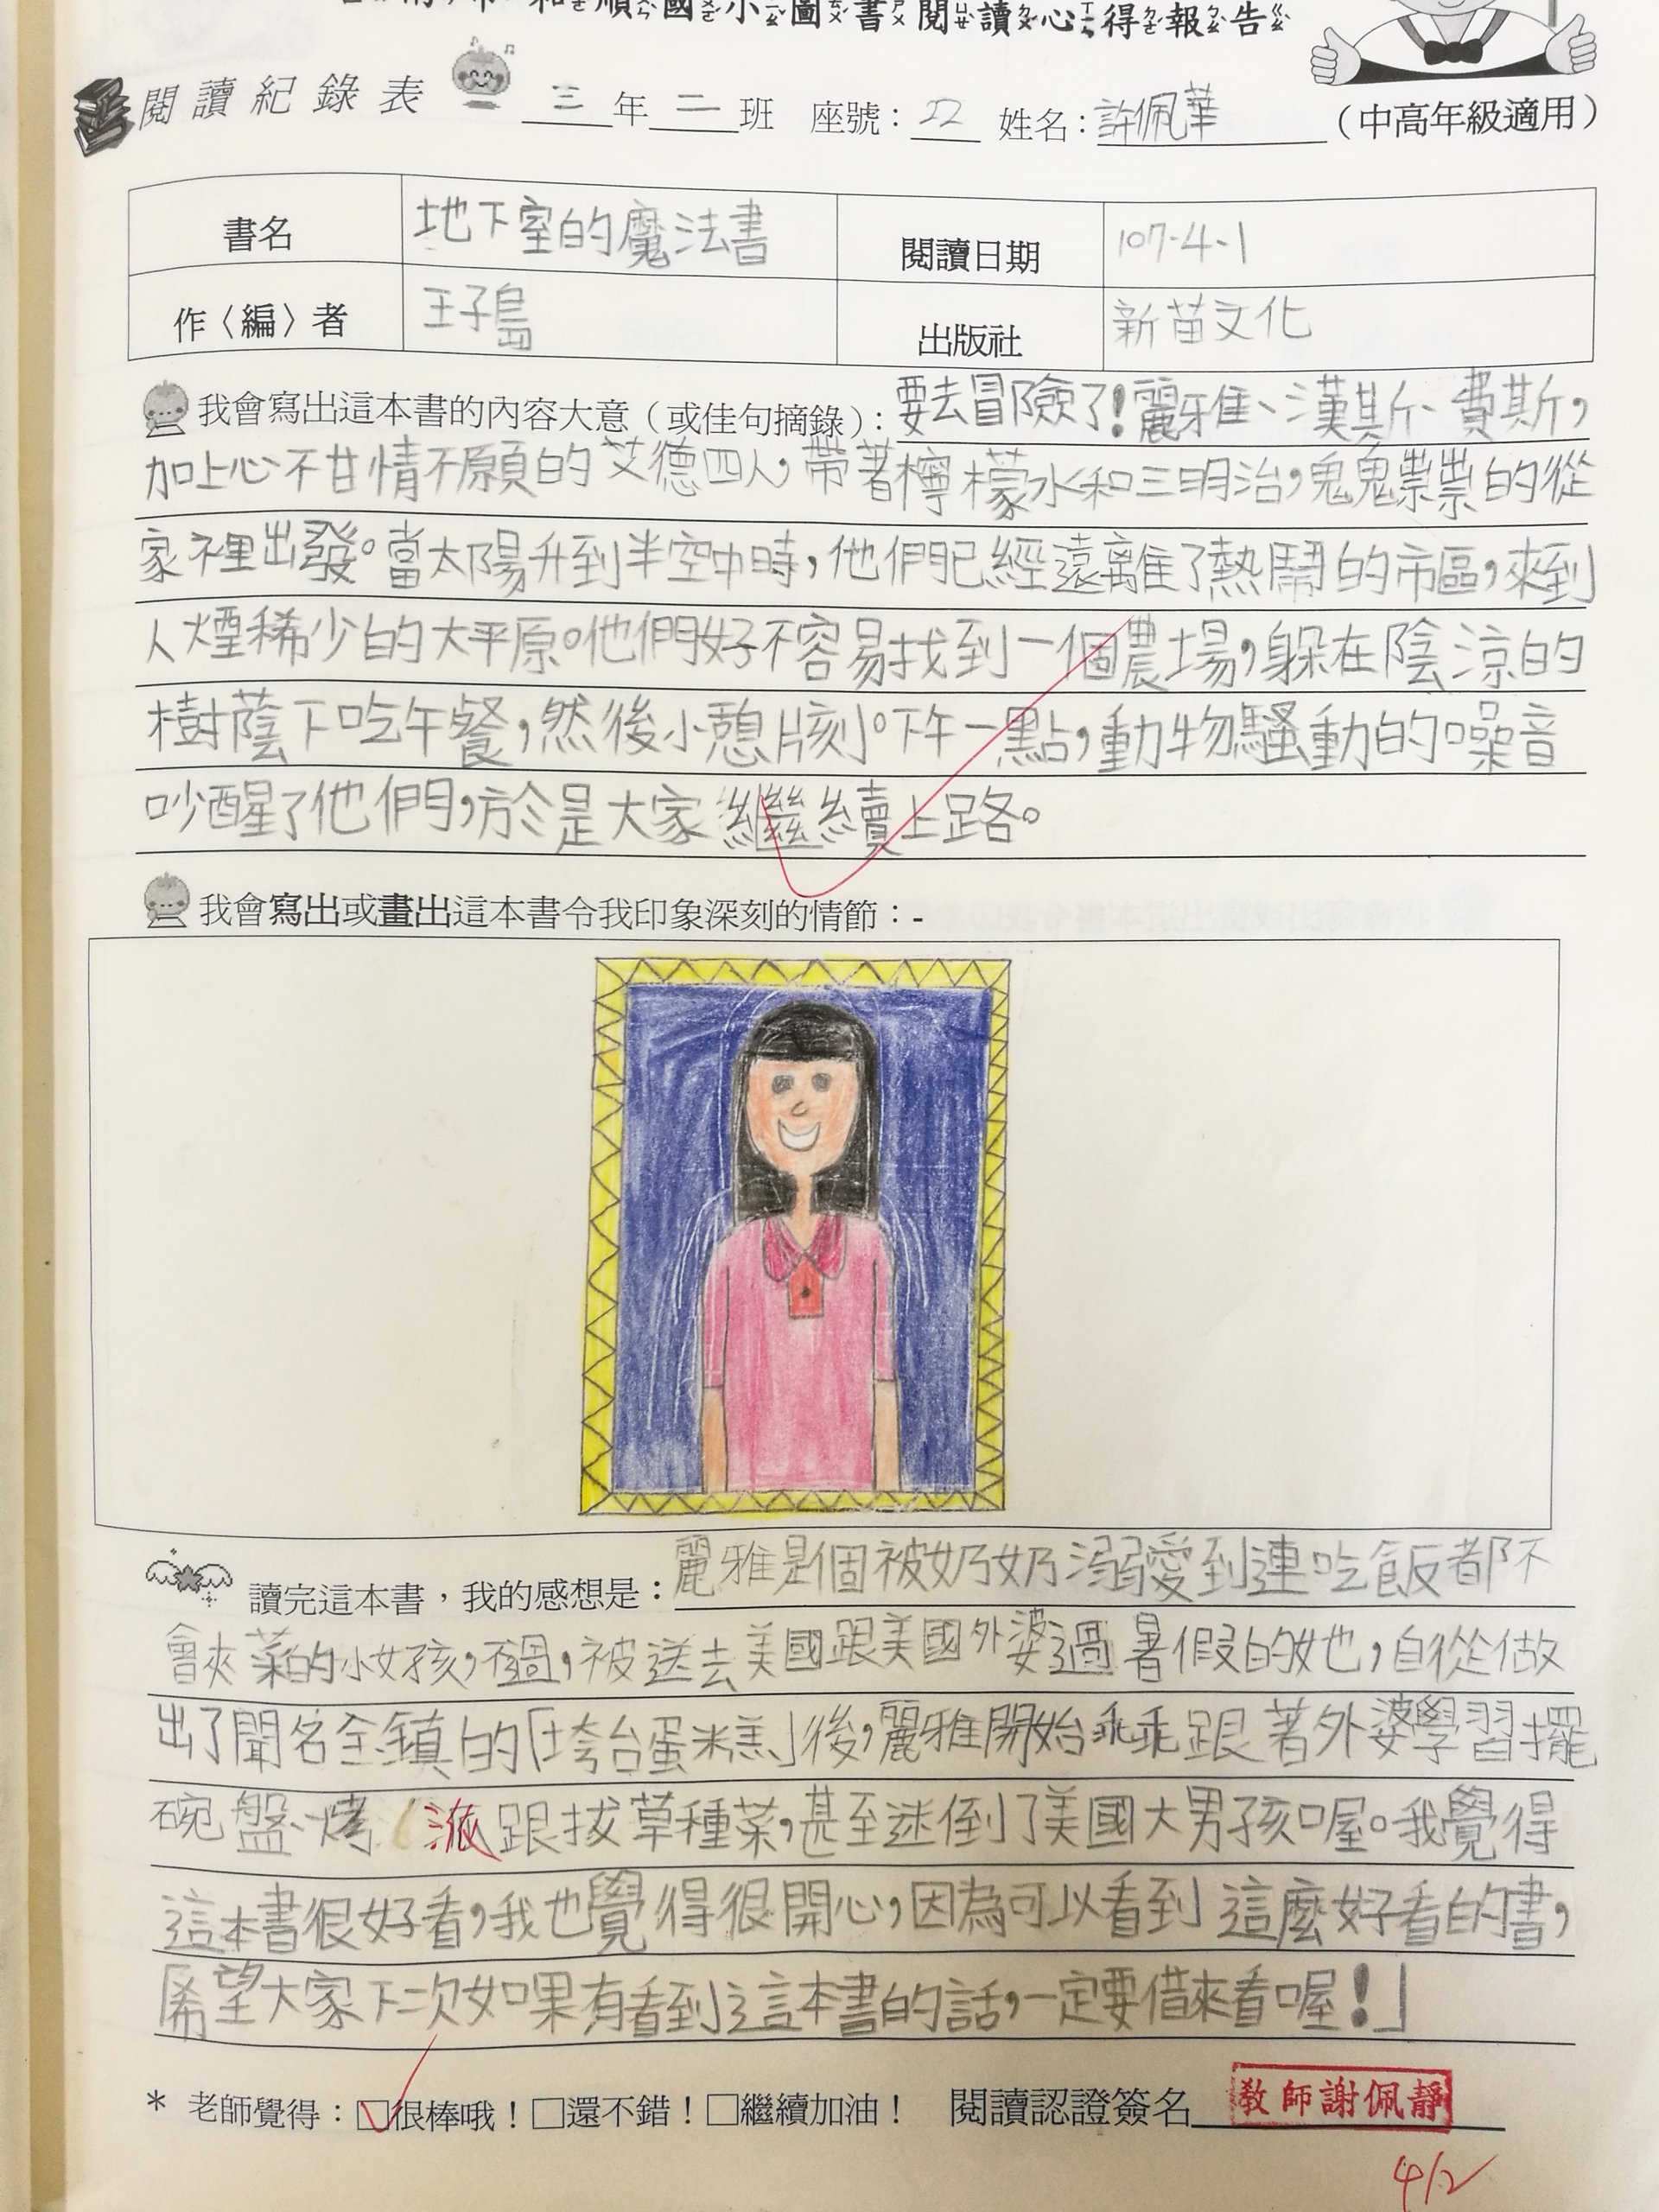 和順國小圖書閱讀心得報告
閱讀紀錄表 三年二班 座號：22 姓名：許佩華 （中高年級適用）
書名 地下室的魔法書 閱讀日期 107-4-1
作〈編〉者 王子島 出版社 新苗文化
我會寫出這本書的內容大意（或佳句摘錄）：要去冒險了！麗雅、漢斯、費斯，
加上心不甘情不願的艾德四人，帶著檸檬水和三明治，鬼鬼祟祟的從
家裡出發。當太陽升到半空中時，他們已經遠離了熱鬧的市區，來到
人煙稀少的大平原。他們好不容易找到一個農場，躲在陰涼的
樹蔭下吃午餐，然後小憩片刻。下午一點，動物騷動的噪音
吵醒了他們，於是大家繼續上路。
我會寫出或畫出這本書令我印象深刻的情節：-
讀完這本書，我的感想是：麗雅是個被奶奶溺愛到連吃飯都不
會夾菜的小女孩，不過，被送去美國跟美國外婆過暑假的她，自從做
出了聞名全鎮的「垮台蛋糕」後，麗雅開始乖乖跟著外婆學習擺
碗盤、烤 派跟拔草種菜，甚至迷倒了美國大男孩喔。我覺得
這本書很好看，我也覺得很開心，因為可以看到這麼好看的書，
「希望大家下次如果有看到這本書的話，一定要借來看喔！」
* 老師覺得：☑很棒哦！□還不錯！□繼續加油！ 閱讀認證簽名 教師謝佩靜
4/2